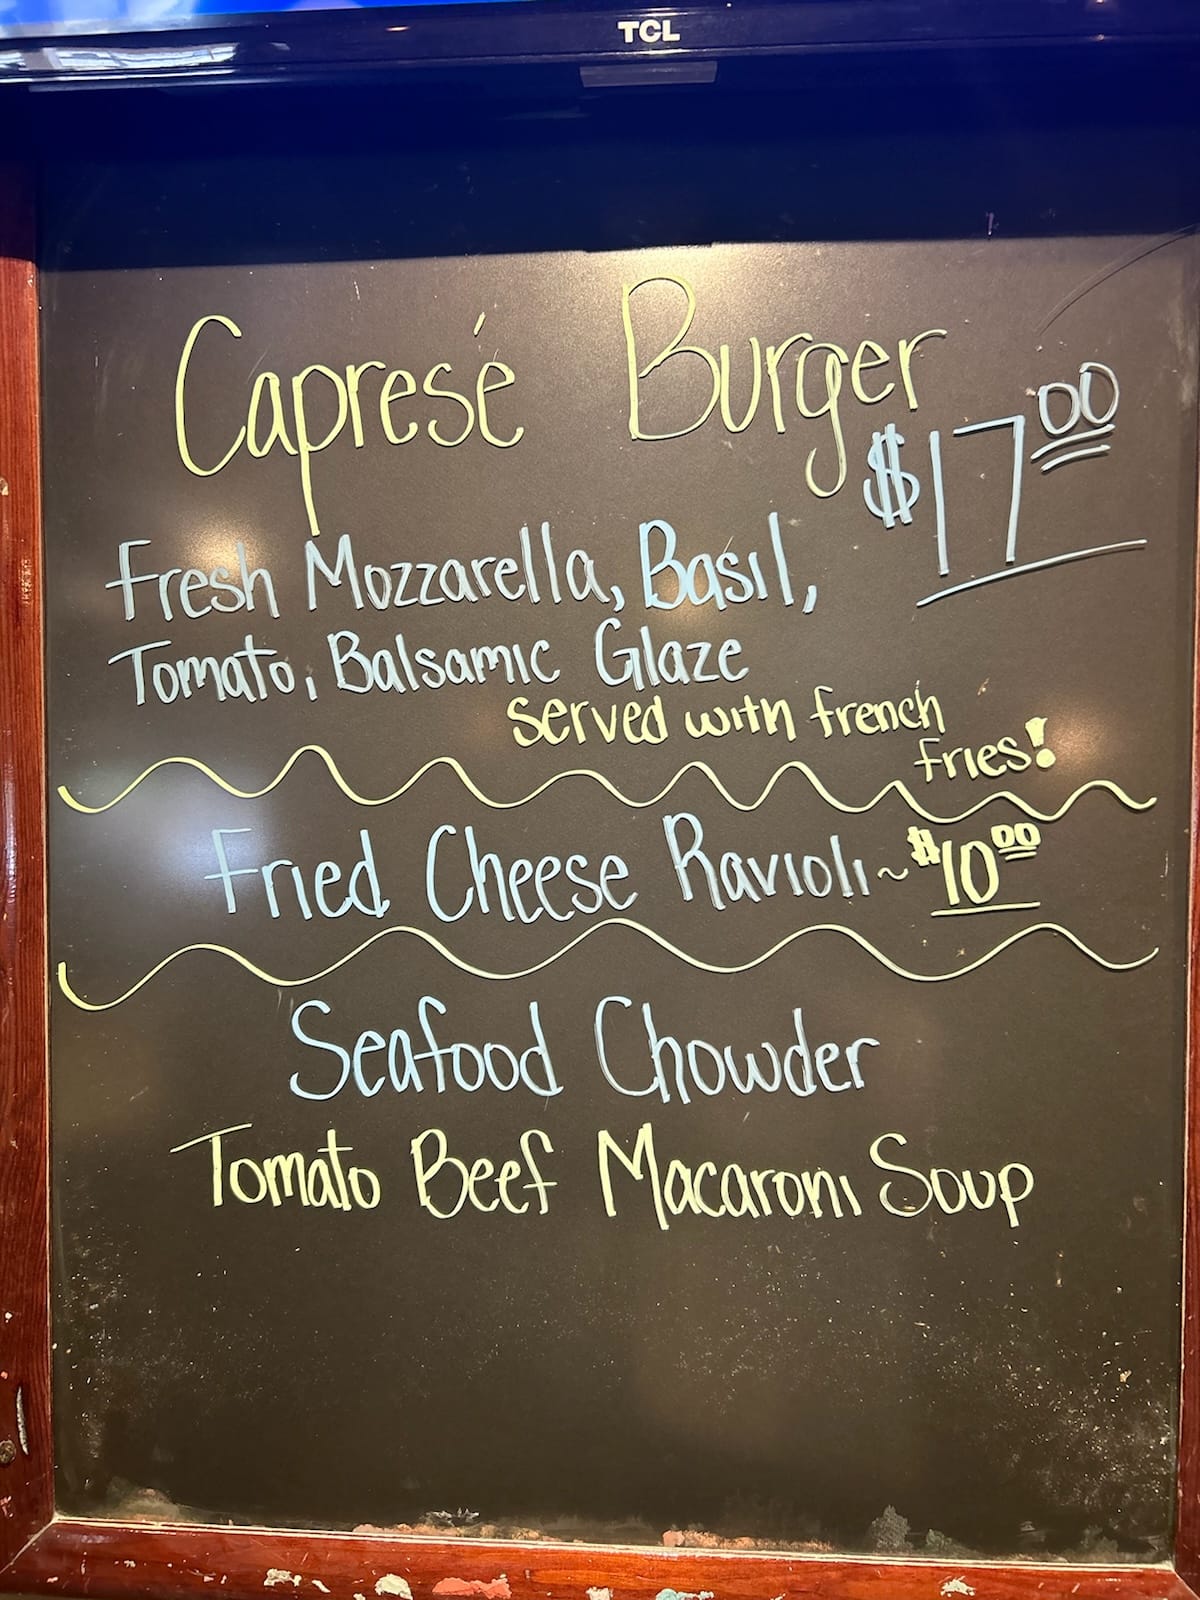 TCL
Capresé Burger
$17.00
Fresh Mozzarella, Basil,
Tomato, Balsamic Glaze
served with french
fries!
Fried Cheese Ravioli ~ $10.00
Seafood Chowder
Tomato Beef Macaroni Soup